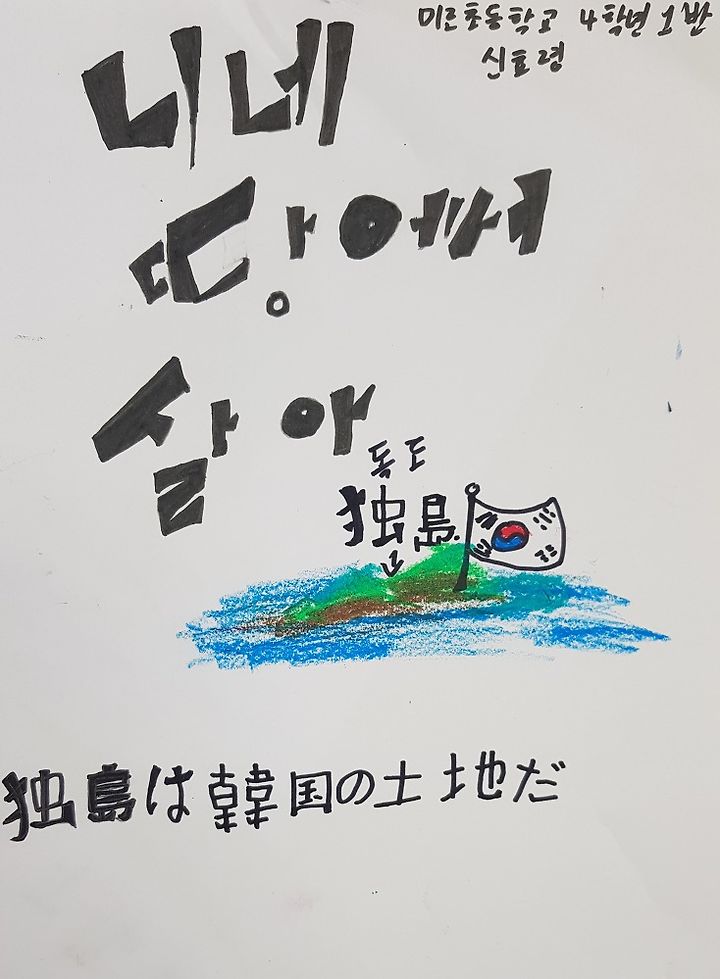 미르초등학교 4학년 1반
신효령
니네
땅에서
살아
독도
独島
独島は韓国の土地だ